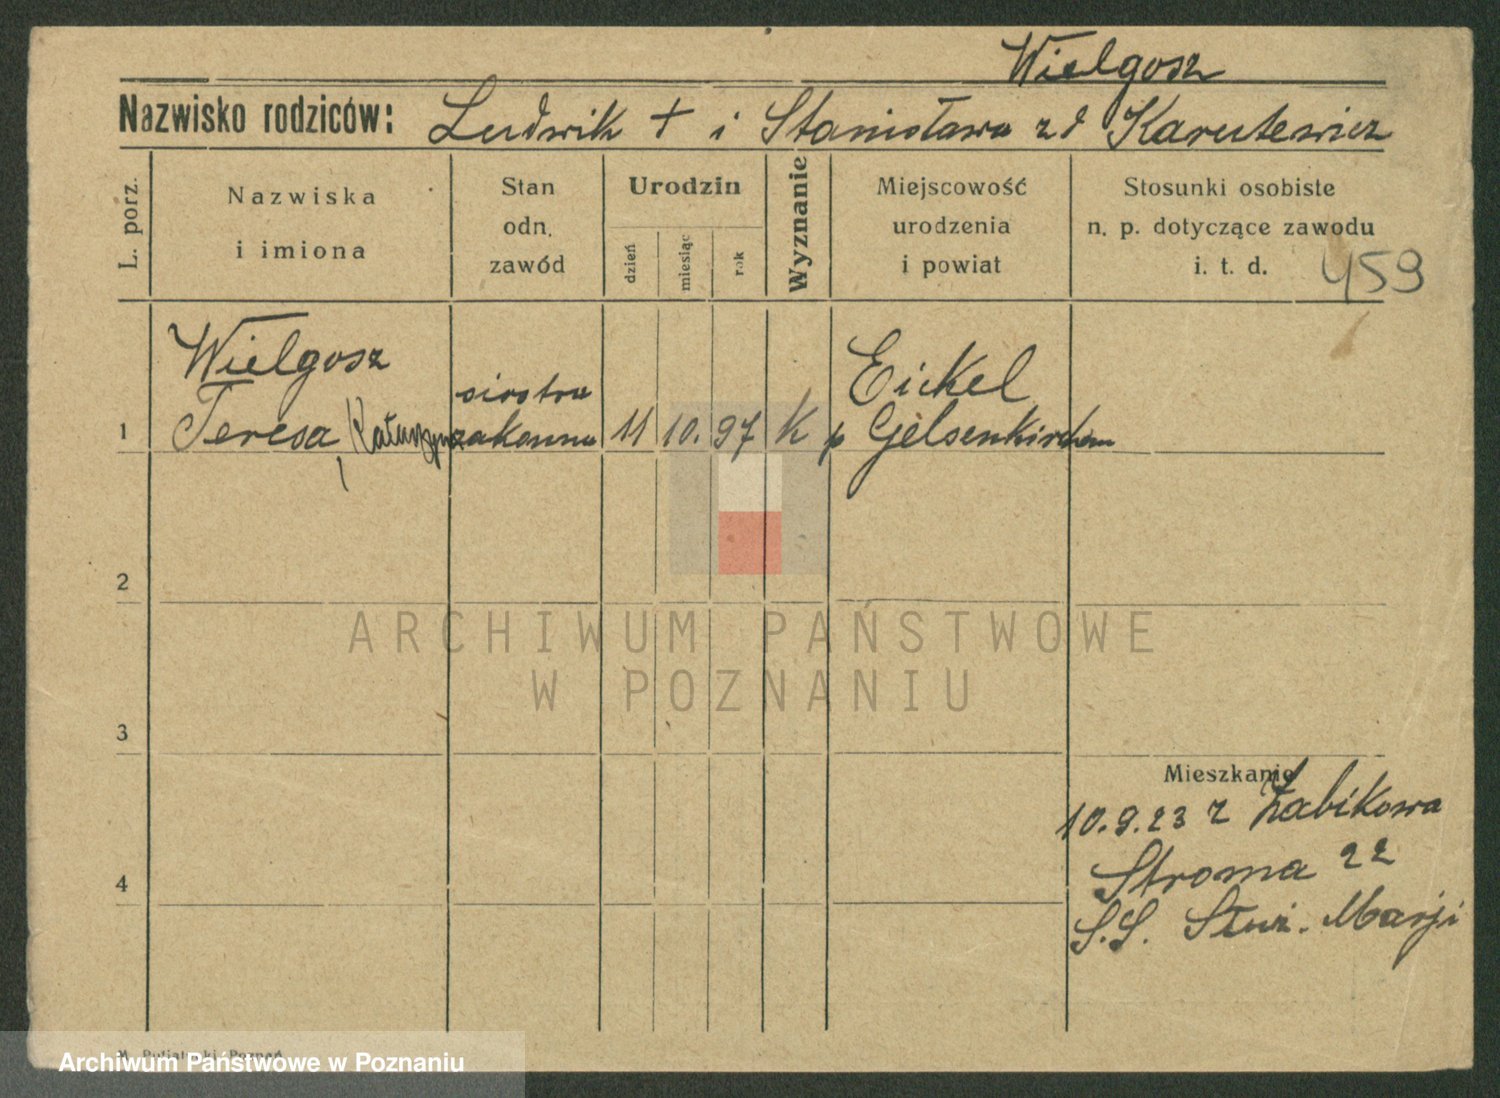 Wielgosz
Nazwisko rodziców: Ludwik + i Stanisława zd Karutewicz
L. porz.
Nazwiska
i imiona
Stan
odn.
zawód
Urodzin
dzień
miesiąc
rok
Wyznanie
Miejscowość
urodzenia
i powiat
Stosunki osobiste
n. p. dotyczące zawodu
i. t. d.
459
1
Wielgosz
Teresa,
siostra
zakonna
11
10.
97
K
Eickel
p Gelsenkirchen
2
ARCHIWUM PAŃSTWOWE
W POZNANIU
3
Mieszkanie
10.9.23 z Żabikowa
4
Stroma 22
S.S. Służ. Marji
Archiwum Państwowe w Poznaniu